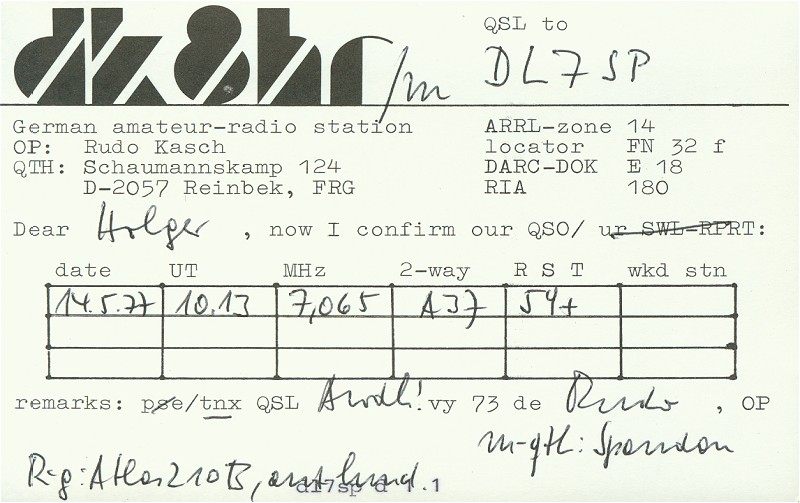 dk8hr/m
QSL to
DL7SP
German amateur-radio station
OP: Rudo Kasch
QTH: Schaumannskamp 124
D-2057 Reinbek, FRG
ARRL-zone 14
locator FN 32 f
DARC-DOK E 18
RIA 180
Dear Holger, now I confirm our QSO/ ur SWL-RPRT:
date UT MHz 2-way R S T wkd stn
14.5.77 10.13 7,065 A3J 59+
remarks: pse/tnx QSL vy 73 de Rudo, OP
m-qth: Spandau
Rig: Atlas 210B,
dl7sp d 1.1